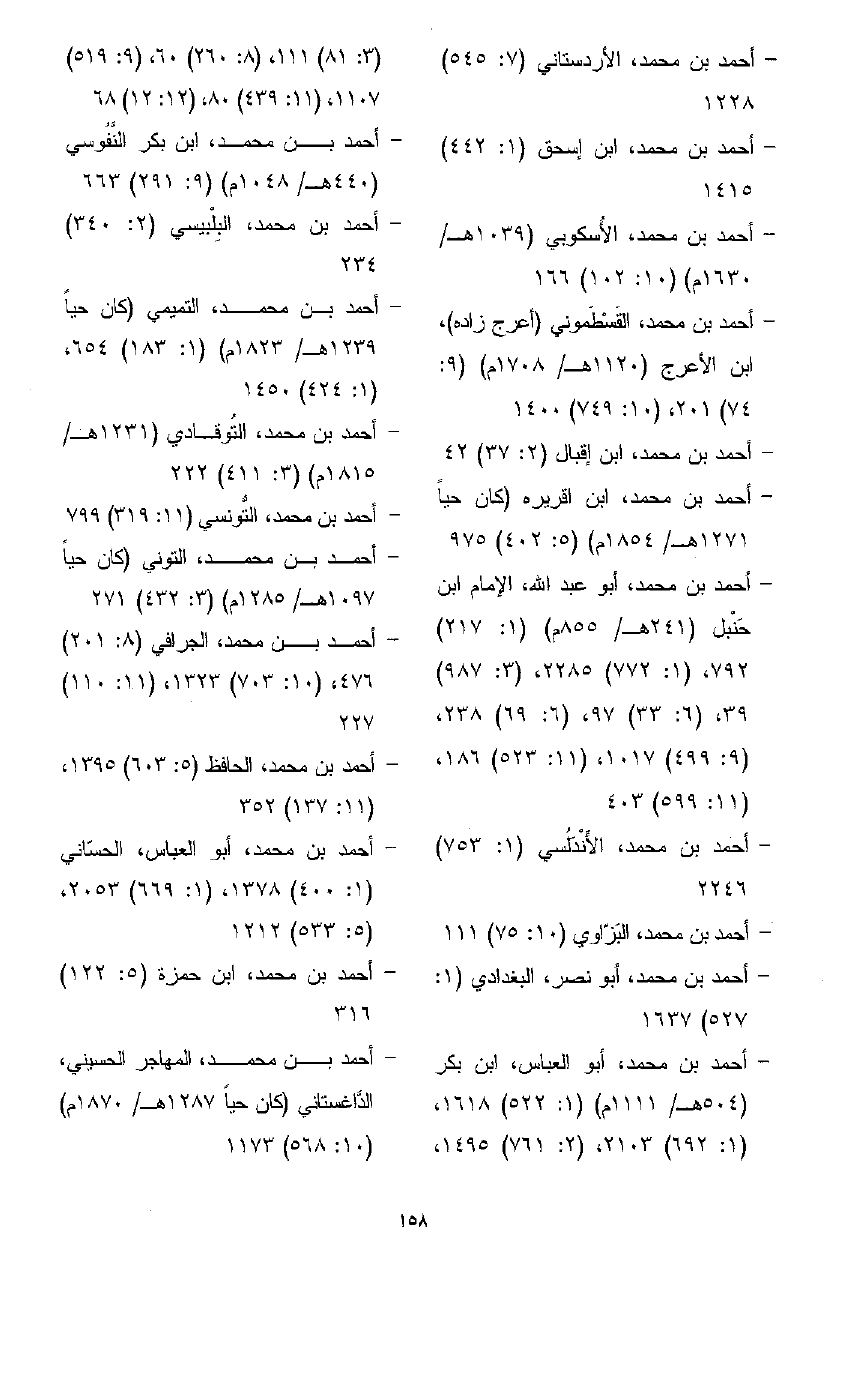 - أحمد بن محمد، الأردستاني (٧: ٥٤٥)
١٢٢٨
- أحمد بن محمد، ابن إسحق (١: ٤٤٢)
١٤١٥
- أحمد بن محمد، الأُسكوبي (١٠٣٩هـ/
١٦٣٠م) (١٠: ١٠٢) ١٦٦
- أحمد بن محمد، القَسْطَموني (أعرج زاده)،
ابن الأعرج (١١٢٠هـ/ ١٧٠٨م) (٩:
٧٤) ٢٠١، (١٠: ٧٤٩) ١٤٠٠
- أحمد بن محمد، ابن إقبال (٢: ٣٧) ٤٢
- أحمد بن محمد، ابن اقريره (كان حياً
١٢٧١هـ/ ١٨٥٤م) (٥: ٤٠٢) ٩٧٥
- أحمد بن محمد، أبو عبد الله، الإمام ابن
حَنْبل (٢٤١هـ/ ٨٥٥م) (١: ٢١٧)
٧٩٢، (١: ٧٧٢) ٢٢٨٥، (٣: ٩٨٧)
٣٩، (٦: ٣٣) ٩٧، (٦: ٦٩) ٢٣٨،
(٩: ٤٩٩) ١٠١٧، (١١: ٥٢٣) ١٨٦،
(١١: ٥٩٩) ٤٠٣
- أحمد بن محمد، الأَنْدَلُسي (١: ٧٥٣)
٢٢٤٦
- أحمد بن محمد، البَزّاوي (١٠: ٧٥) ١١١
- أحمد بن محمد، أبو نصر، البغدادي (١:
٥٢٧) ١٦٣٧
- أحمد بن محمد، أبو العباس، ابن بكر
(٥٠٤هـ/ ١١١١م) (١: ٥٢٢) ١٦١٨،
(١: ٦٩٢) ٢١٠٣، (٢: ٧٦١) ١٤٩٥،
(٣: ٨١) ١١١، (٨: ٢٦٠) ٦٠، (٩: ٥١٩)
١١٠٧، (١١: ٤٣٩) ٨٠، (١٢: ١٢) ٦٨
- أحمد بـن محمـد، ابن بكر النَّفُوسي
(٤٤٠هـ/ ١٠٤٨م) (٩: ٢٩١) ٦٦٣
- أحمد بن محمد، البِلْبيسي (٢: ٣٤٠)
٢٣٤
- أحمد بـن محمـد، التميمي (كان حياً
١٢٣٩هـ/ ١٨٢٣م) (١: ١٨٣) ٦٥٤،
(١: ٤٢٤) ١٤٥٠
- أحمد بن محمد، التُوقـادي (١٢٣١هـ/
١٨١٥م) (٣: ٤١١) ٢٢٢
- أحمد بن محمد، التُّونسي (١١: ٣١٩) ٧٩٩
- أحمـد بـن محمـد، التوني (كان حياً
١٠٩٧هـ/ ١٢٨٥م) (٣: ٤٣٢) ٢٧١
- أحمـد بـن محمد، الجرافي (٨: ٢٠١)
٤٧٦، (١٠: ٧٠٣) ١٣٢٣، (١١: ١١٠)
٢٢٧
- أحمد بن محمد، الحافظ (٥: ٦٠٣) ١٣٩٥،
(١١: ١٣٧) ٣٥٢
- أحمد بن محمد، أبو العباس، الحسّاني
(١: ٤٠٠) ١٣٧٨، (١: ٦٦٩) ٢٠٥٣،
(٥: ٥٣٣) ١٢١٢
- أحمد بن محمد، ابن حمزة (٥: ١٢٢)
٣١٦
- أحمد بـن محمـد، المهاجر الحسيني،
الدَّاغستاني (كان حياً ١٢٨٧هـ/ ١٨٧٠م)
(١٠: ٥٦٨) ١١٧٣
١٥٨